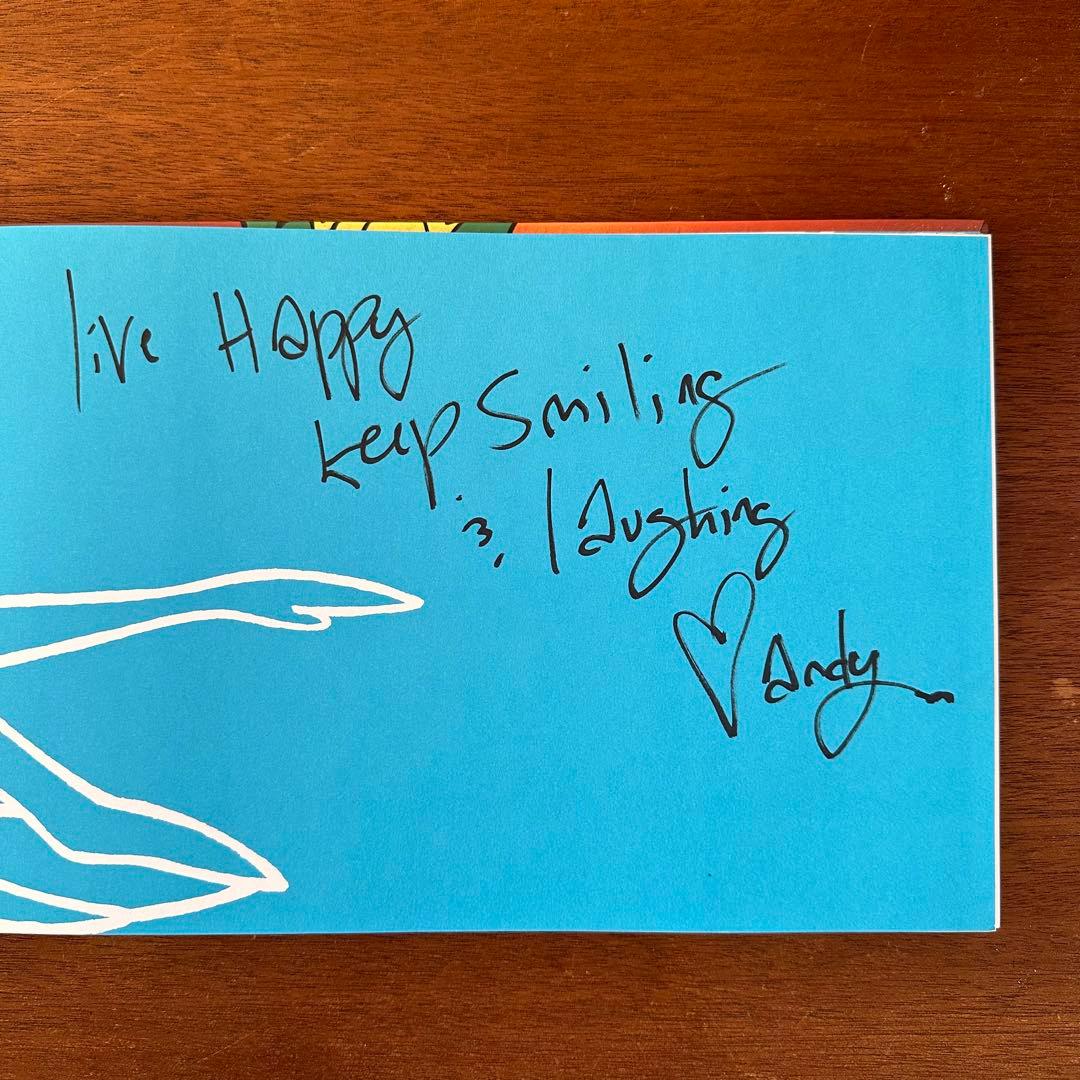 live Happy
keep Smiling
& laughing
♡ Andy